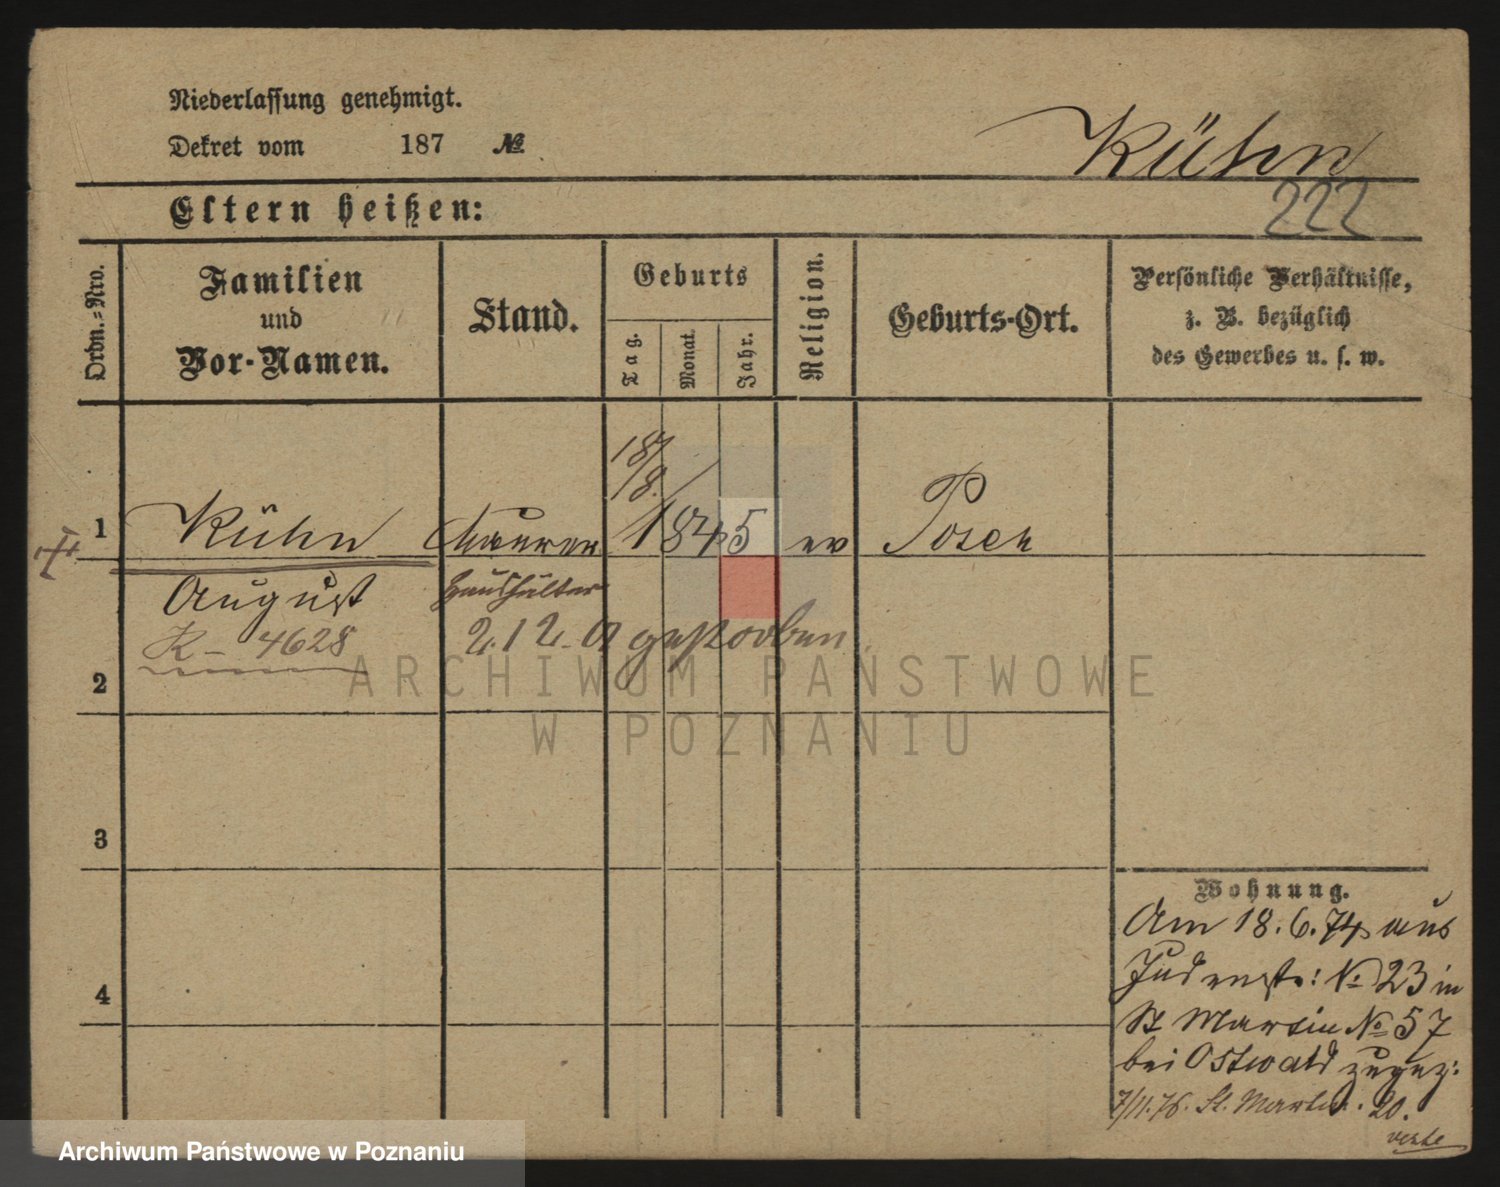 Niederlassung genehmigt.
Dekret vom 187 №
Kühn
222
Eltern heißen:
Ordn.-Nro.
Familien
und
Vor-Namen.
Stand.
Geburts
Tag.
Monat.
Jahr.
Religion.
Geburts-Ort.
Persönliche Verhältnisse,
z. B. bezüglich
des Gewerbes u. s. w.
18/8.
1 Kühn Maurer 1845 ev Posen
August Haushälter
K - 4628 gestorben
2
3
4
Wohnung.
Am 18.6.74 aus
Judenstr: № 23 in
St Martin № 57
bei Ostwald zugez:
7/11.76. St. Martin. 20.
ARCHIWUM PAŃSTWOWE
W POZNANIU
Archiwum Państwowe w Poznaniu